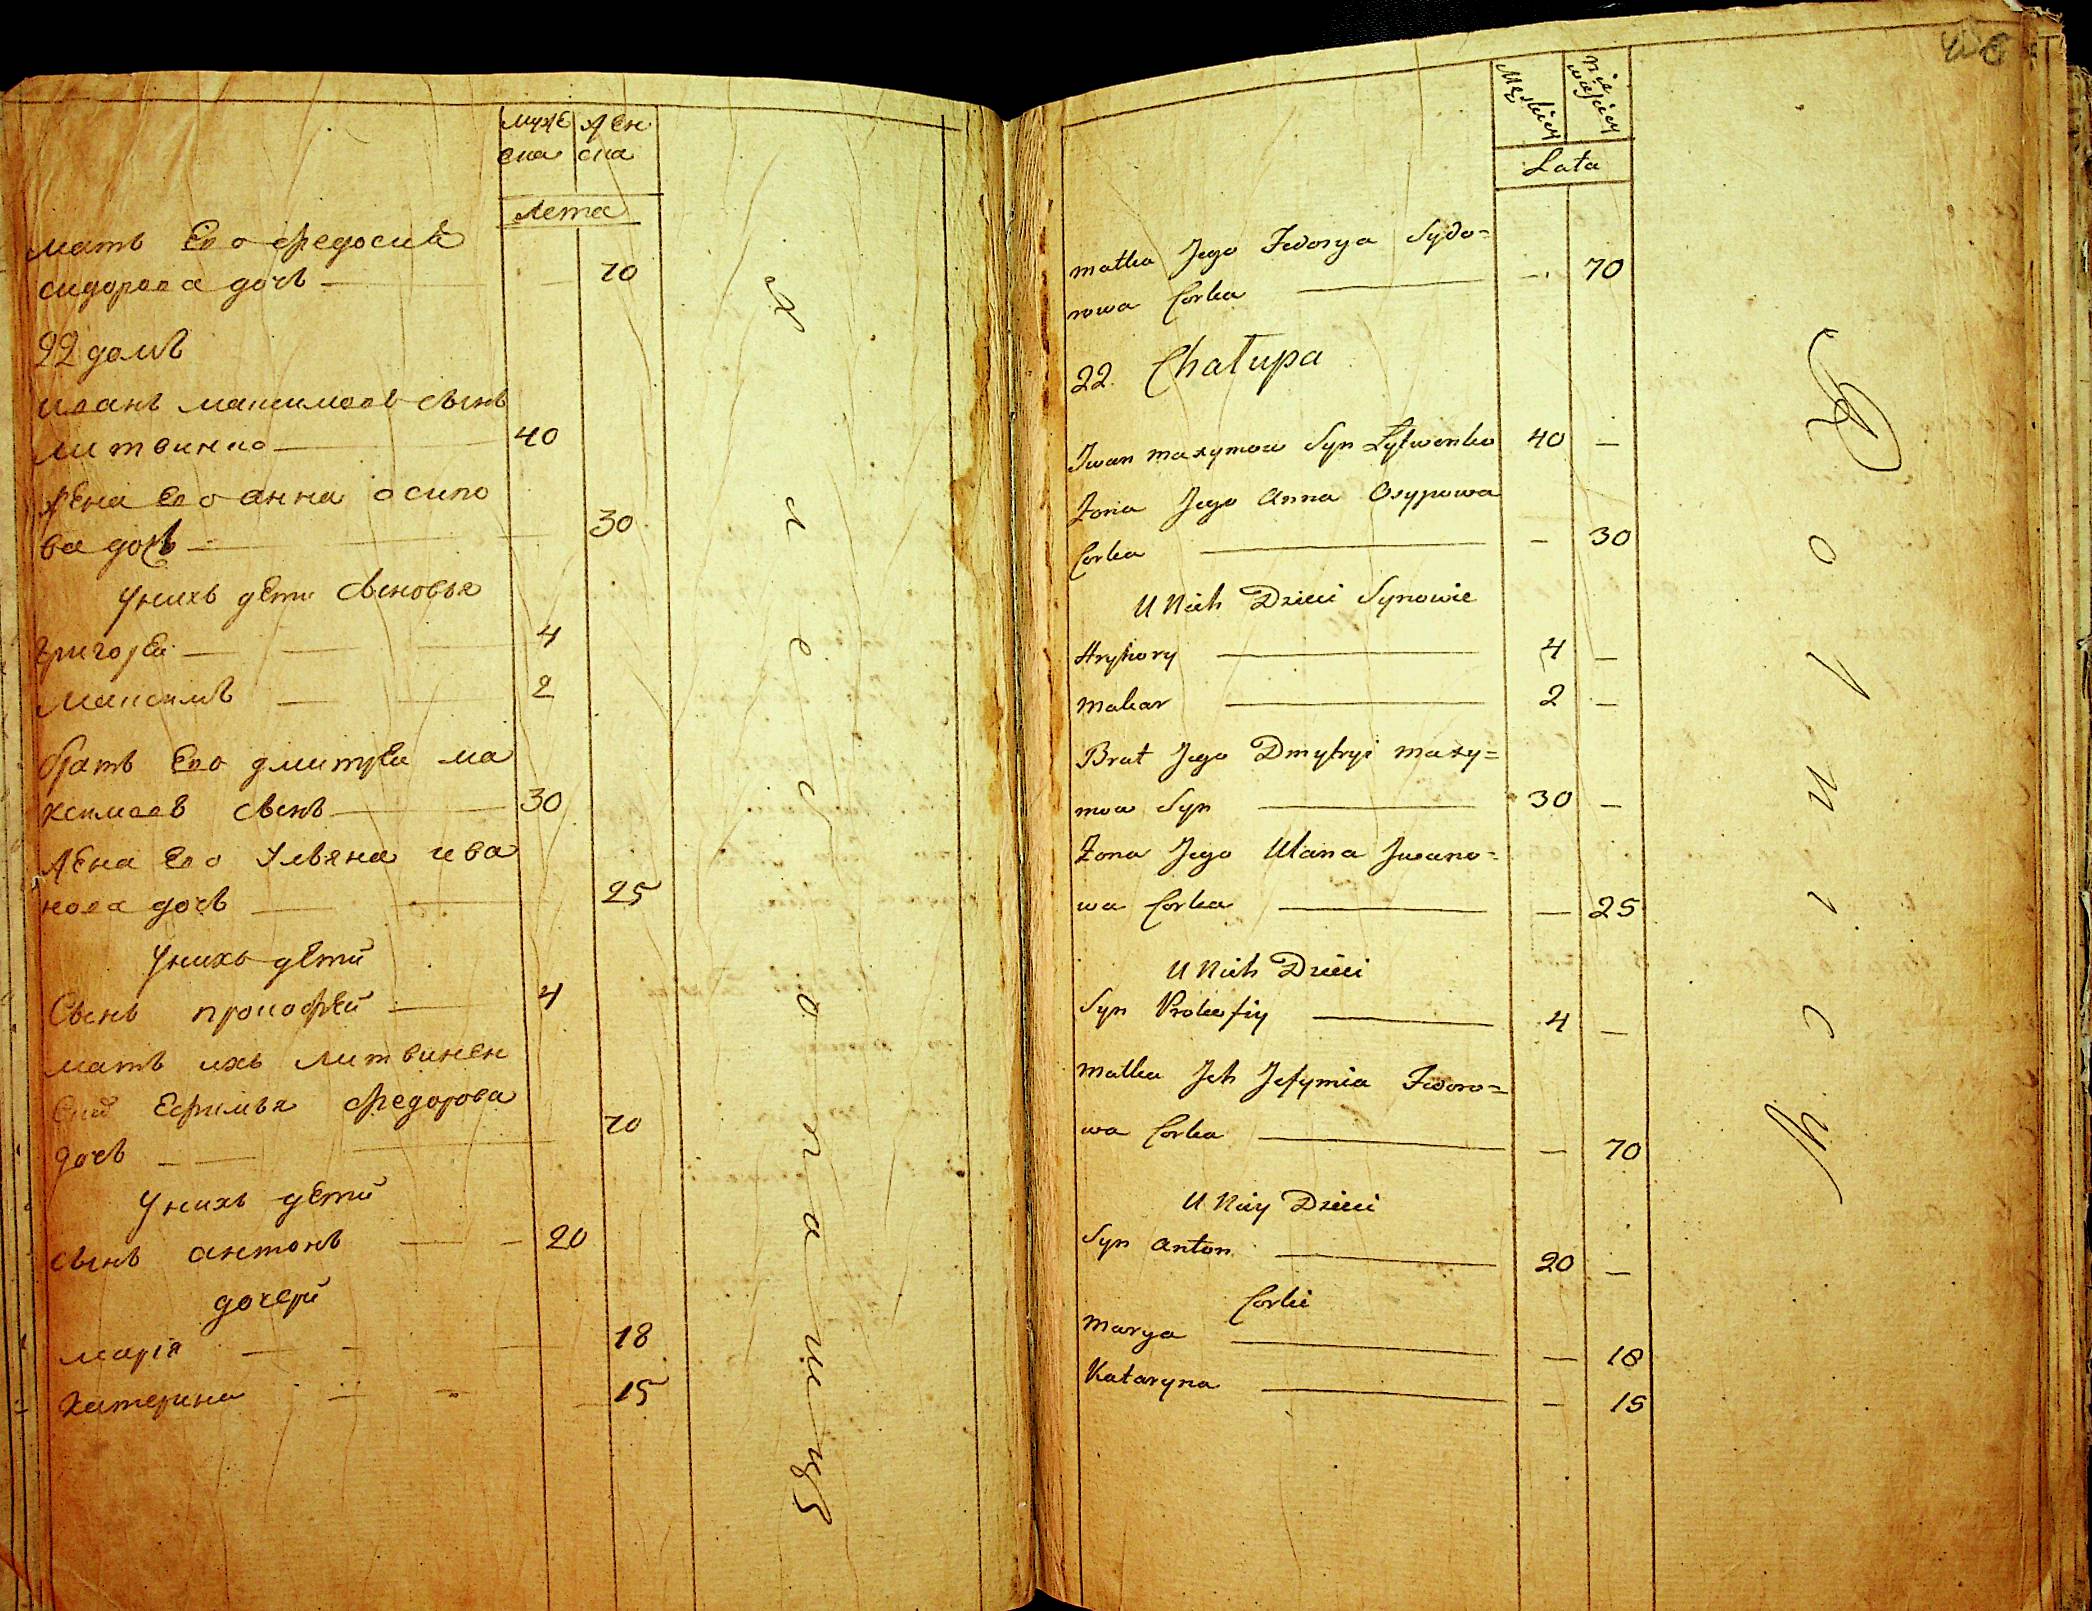 муже жен
ска ска
лета
мать Его федосия
сидорова дочь 70
22 домъ
иванъ максимовъ сынъ
литвинко 40
жена Его анна осипо
ва дочь 30
Унихъ дети сыновья
григорей 4
максимъ 2
братъ Его дмитрей ма
ксимовъ сынъ 30
жена Его Ульяна ива
нова дочь 25
Унихъ дети
Сынъ прокофей 4
мать ихъ литвинен
Ефимья федорова
дочь 70
Унихъ дети
сынъ антонъ 20
дочери
марія 18
катерина 15
хлебопашцъ
Męskiey Niewieściey
Lata
matka Jego Fedosya Sydo=
rowa Corka — 70
22. Chałupa
Iwan maxymow Syn Lytwenko 40 —
Żona Jego Anna Osypowa
Corka — 30
U Nich Dzieci Synowie
Hryhory 4 —
makar 2 —
Brat Jego Dmytryi maxy=
mow Syn 30 —
Żona Jego Ulana Iwano=
wa Corka — 25
U Nich Dzieci
Syn Prokofiy 4 —
matka Ich Jefymia Fedoro=
wa Corka — 70
U Niey Dzieci
Syn Anton 20 —
Corki
marya — 18
Kataryna — 15
Rolnicy